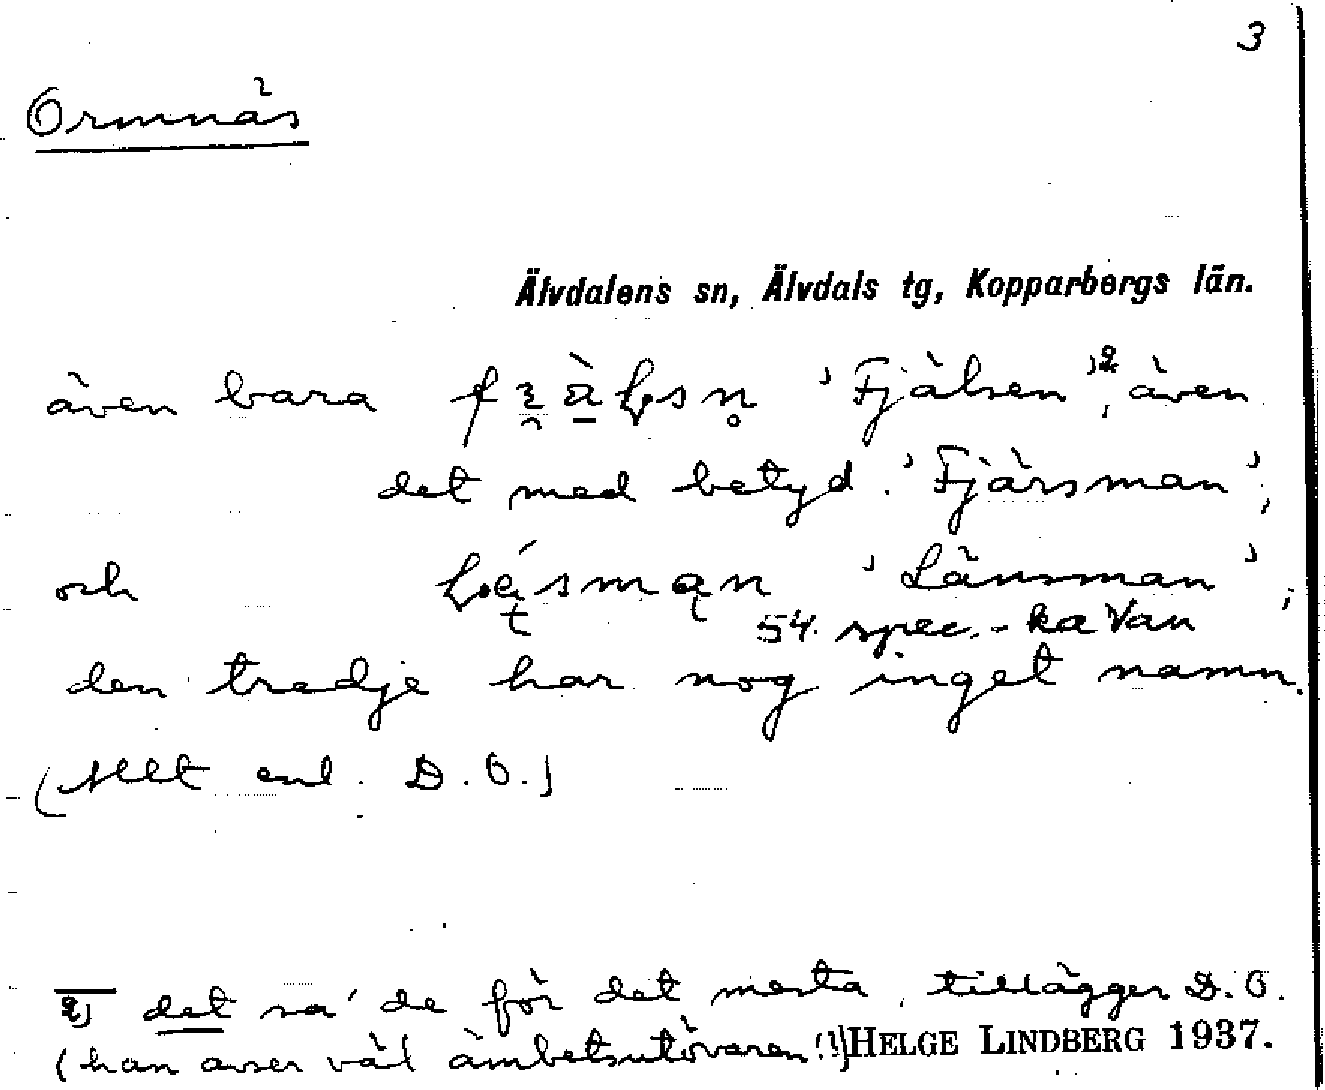 3
Ormnäs
Älvdalens sn, Älvdals tg, Kopparbergs län.
även bara 'Fjälsen'², även
det med betyd. 'Fjärsman';
och 'Länsman';
54. spec.
den tredje har nog inget namn.
(Allt enl. D.O.)
2) det sa' de för det mesta, tillägger D.O.
(han avser väl ämbetsutövaren!!) HELGE LINDBERG 1937.